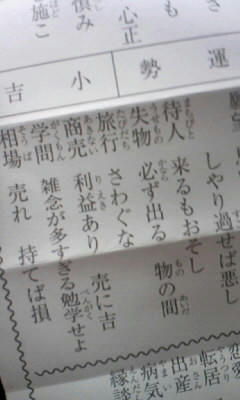 も
さ
心正
慎み
施こ
運勢 小吉
願望
しやり過せば悪し
待人 来るもおそし
失物 必ず出る 物の間
旅行 さわぐな
商売 利益あり 売に吉
学問 雑念が多すぎる勉学せよ
相場 売れ 持てば損
恋愛
転居
出産
病気
縁談